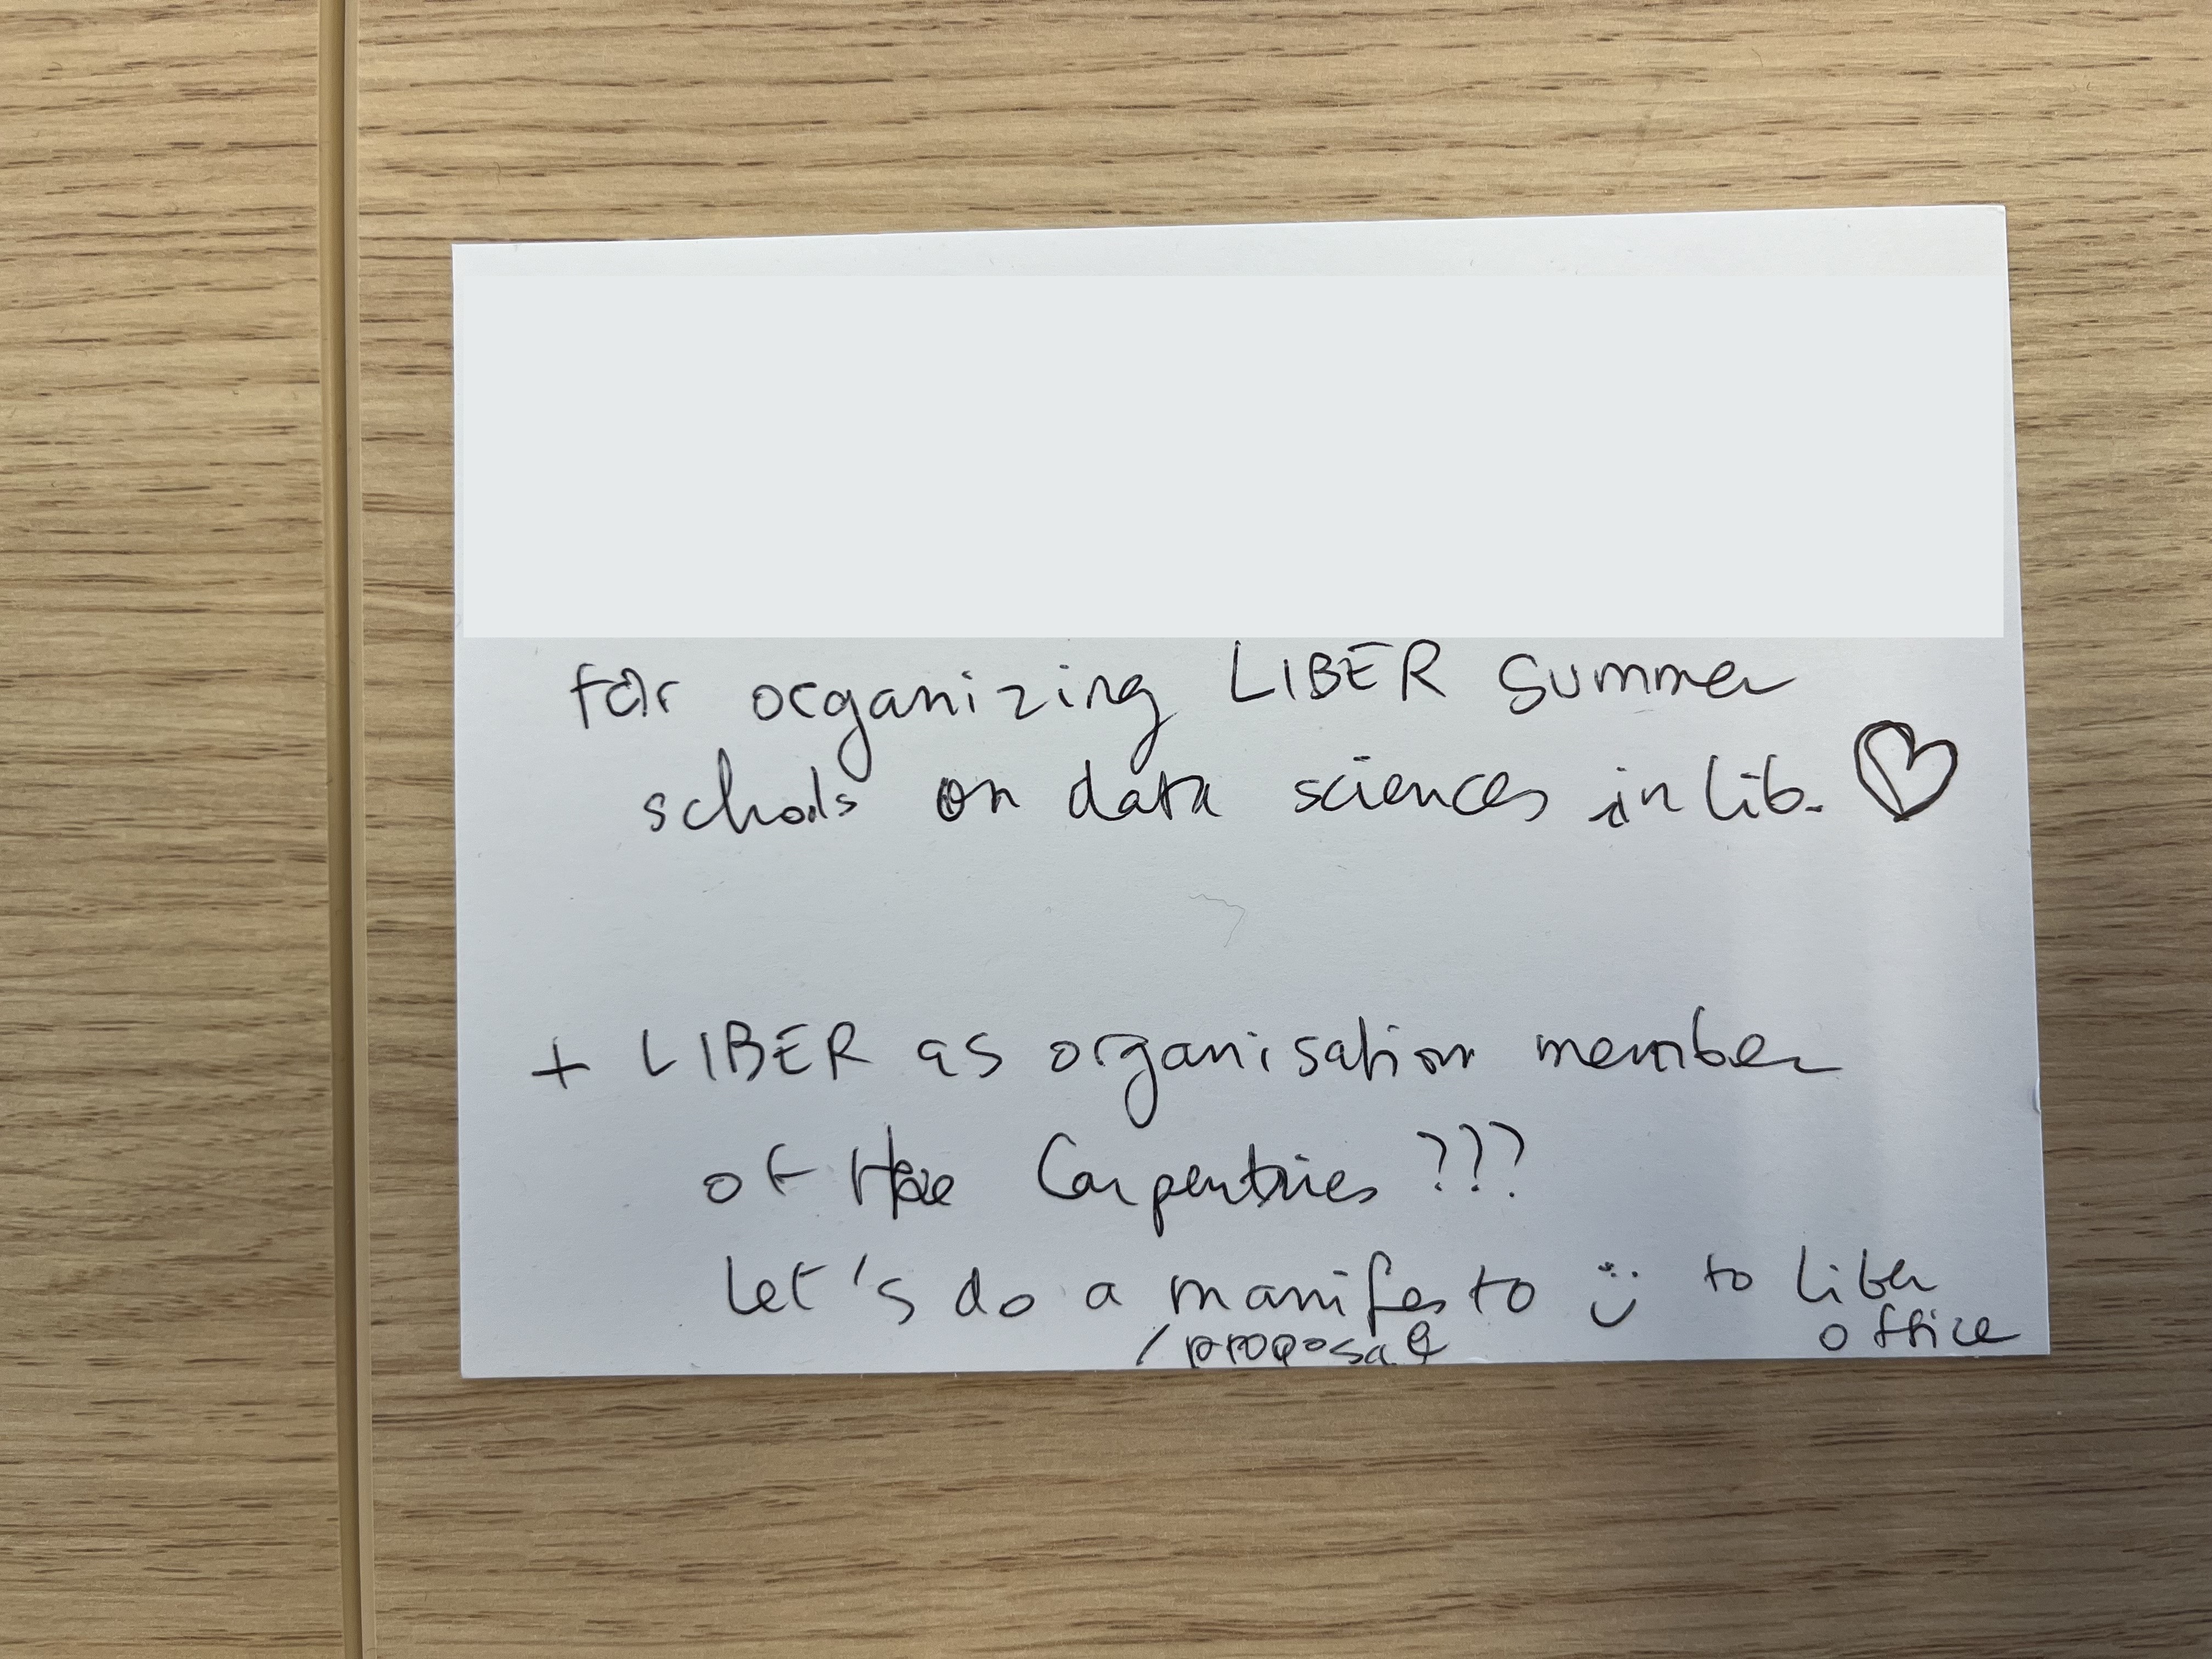 for organizing LIBER Summer
schools on data sciences in lib. ♡
+ LIBER as organisation member
of the Carpentries ???
Let's do a manifesto :) to Liber
/proposal office